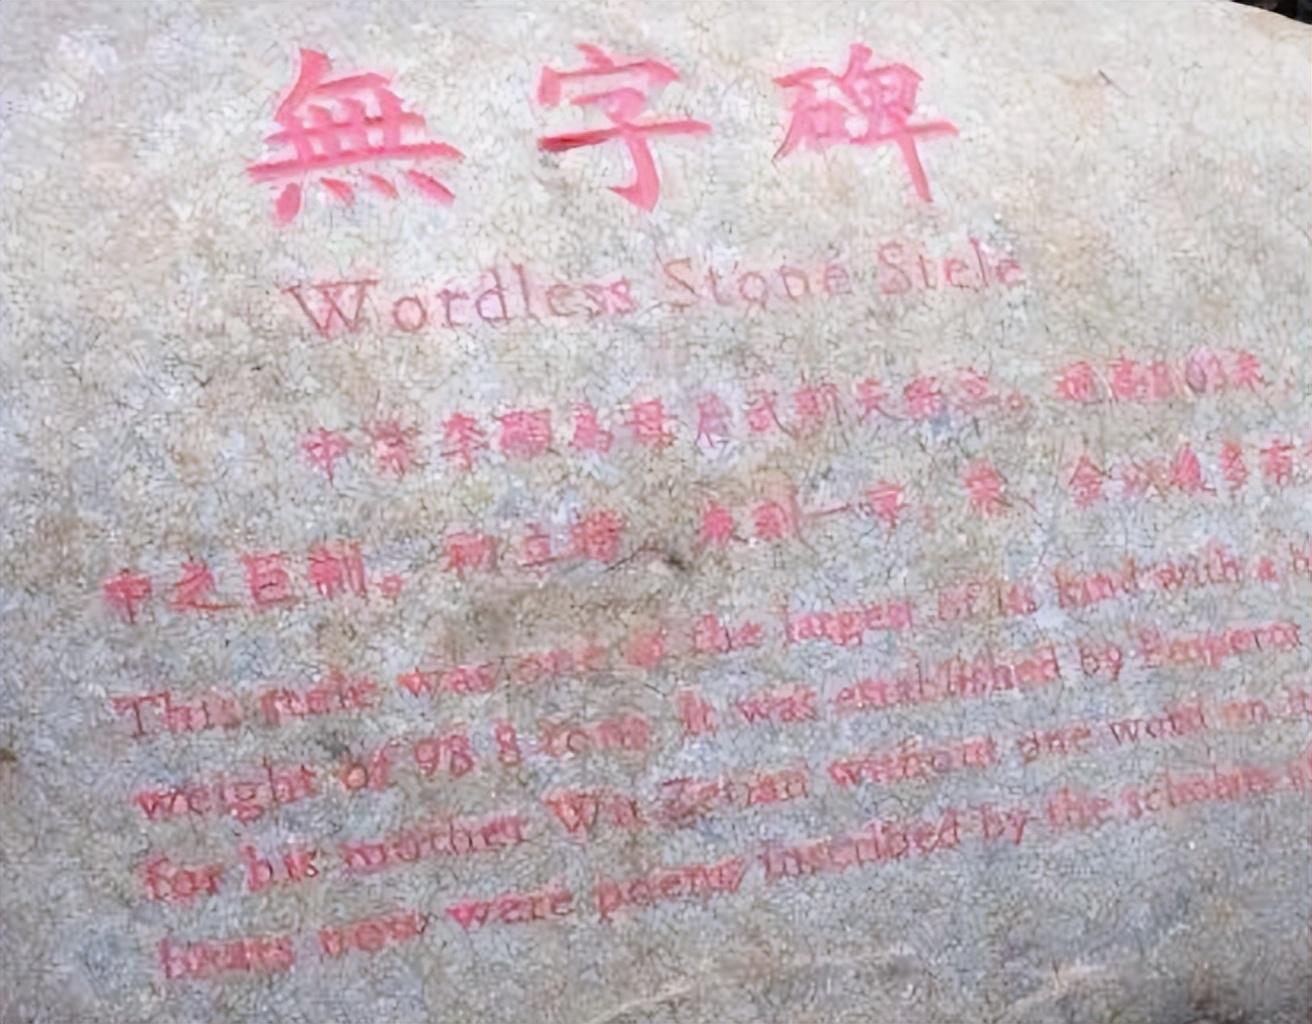 無字碑
Wordless Stone Stele
中宗李顯為母后武則天所立。通高
中之巨制。初立時，未刻一字。宋、金以後多有
This stele was one of the largest of its kind with a
weight of 98.8 tons. It was established by Emperor
for his mother Wu Zetian without one word on
now were poems inscribed by the scholars